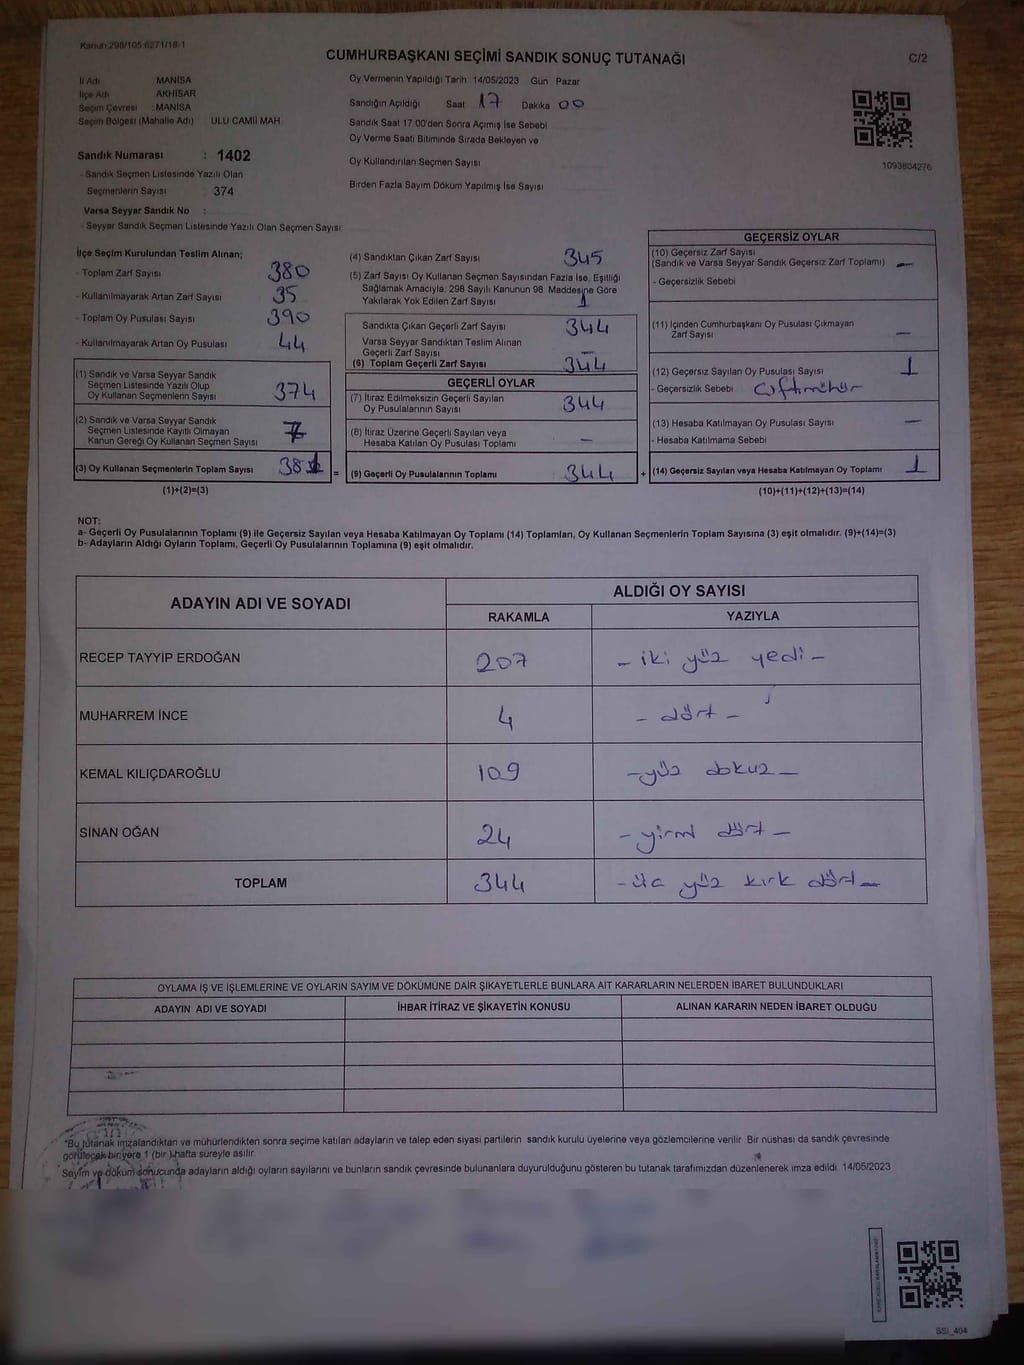 Kanun:298/105:6271/18-1
CUMHURBAŞKANI SEÇİMİ SANDIK SONUÇ TUTANAĞI
C/2
İl Adı MANİSA
İlçe Adı AKHİSAR
Seçim Çevresi : MANİSA
Seçim Bölgesi (Mahalle Adı) ULU CAMİİ MAH
Sandık Numarası : 1402
- Sandık Seçmen Listesinde Yazılı Olan
Seçmenlerin Sayısı 374
Varsa Seyyar Sandık No :
- Seyyar Sandık Seçmen Listesinde Yazılı Olan Seçmen Sayısı:
Oy Vermenin Yapıldığı Tarih 14/05/2023 Gün Pazar
Sandığın Açıldığı Saat 17 Dakika 00
Sandık Saat 17:00'den Sonra Açımış İse Sebebi
Oy Verme Saati Bitiminde Sırada Bekleyen ve
Oy Kullandırılan Seçmen Sayısı
Birden Fazla Sayım Döküm Yapılmış İse Sayısı
1093804276
İlçe Seçim Kurulundan Teslim Alınan;
- Toplam Zarf Sayısı 380
- Kullanılmayarak Artan Zarf Sayısı 35
- Toplam Oy Pusulası Sayısı 390
- Kullanılmayarak Artan Oy Pusulası 44
(1) Sandık ve Varsa Seyyar Sandık
Seçmen Listesinde Yazılı Olup
Oy Kullanan Seçmenlerin Sayısı 374
(2) Sandık ve Varsa Seyyar Sandık
Seçmen Listesinde Kayıtlı Olmayan
Kanun Gereği Oy Kullanan Seçmen Sayısı 7
(3) Oy Kullanan Seçmenlerin Toplam Sayısı 381 =
(1)+(2)=(3)
(4) Sandıktan Çıkan Zarf Sayısı 345
(5) Zarf Sayısı Oy Kullanan Seçmen Sayısından Fazla İse, Eşitliği
Sağlamak Amacıyla, 298 Sayılı Kanunun 98. Maddesine Göre
Yakılarak Yok Edilen Zarf Sayısı 1
Sandıkta Çıkan Geçerli Zarf Sayısı 344
Varsa Seyyar Sandıktan Teslim Alınan
Geçerli Zarf Sayısı –
(6) Toplam Geçerli Zarf Sayısı 344
GEÇERLİ OYLAR
(7) İtiraz Edilmeksizin Geçerli Sayılan
Oy Pusulalarının Sayısı 344
(8) İtiraz Üzerine Geçerli Sayılan veya
Hesaba Katılan Oy Pusulası Toplamı –
(9) Geçerli Oy Pusulalarının Toplamı 344 +
GEÇERSİZ OYLAR
(10) Geçersiz Zarf Sayısı
(Sandık ve Varsa Seyyar Sandık Geçersiz Zarf Toplamı) –
- Geçersizlik Sebebi
(11) İçinden Cumhurbaşkanı Oy Pusulası Çıkmayan
Zarf Sayısı –
(12) Geçersiz Sayılan Oy Pusulası Sayısı 1
- Geçersizlik Sebebi Çiftmühür
(13) Hesaba Katılmayan Oy Pusulası Sayısı –
- Hesaba Katılmama Sebebi
(14) Geçersiz Sayılan veya Hesaba Katılmayan Oy Toplamı 1
(10)+(11)+(12)+(13)=(14)
NOT:
a- Geçerli Oy Pusulalarının Toplamı (9) ile Geçersiz Sayılan veya Hesaba Katılmayan Oy Toplamı (14) Toplamları, Oy Kullanan Seçmenlerin Toplam Sayısına (3) eşit olmalıdır. (9)+(14)=(3)
b- Adayların Aldığı Oyların Toplamı, Geçerli Oy Pusulalarının Toplamına (9) eşit olmalıdır.
ADAYIN ADI VE SOYADI ALDIĞI OY SAYISI
RAKAMLA YAZIYLA
RECEP TAYYİP ERDOĞAN 207 – iki yüz yedi –
MUHARREM İNCE 4 – dört –
KEMAL KILIÇDAROĞLU 109 – yüz dokuz –
SİNAN OĞAN 24 – yirmi dört –
TOPLAM 344 – üç yüz kırk dört –
OYLAMA İŞ VE İŞLEMLERİNE VE OYLARIN SAYIM VE DÖKÜMÜNE DAİR ŞİKAYETLERLE BUNLARA AİT KARARLARIN NELERDEN İBARET BULUNDUKLARI
ADAYIN ADI VE SOYADI İHBAR İTİRAZ VE ŞİKAYETİN KONUSU ALINAN KARARIN NEDEN İBARET OLDUĞU
"Bu tutanak imzalandıktan ve mühürlendikten sonra seçime katılan adayların ve talep eden siyasi partilerin sandık kurulu üyelerine veya gözlemcilerine verilir. Bir nüshası da sandık çevresinde
görülecek bir yere 1 (bir ) hafta süreyle asılır.
Sayım ve döküm sonucunda adayların aldığı oyların sayılarını ve bunların sandık çevresinde bulunanlara duyurulduğunu gösteren bu tutanak tarafımızdan düzenlenerek imza edildi. 14/05/2023
SSI_404